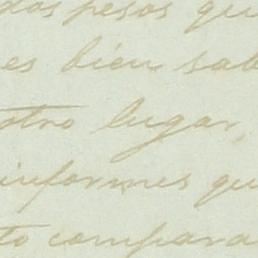 dos pesos qu
es bien sab
otro lugar,
informes qu
to compara